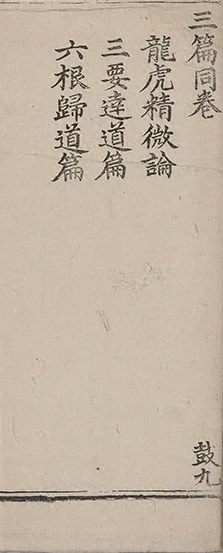 三篇同卷
龍虎精微論
三要達道篇
六根歸道篇
鼓九